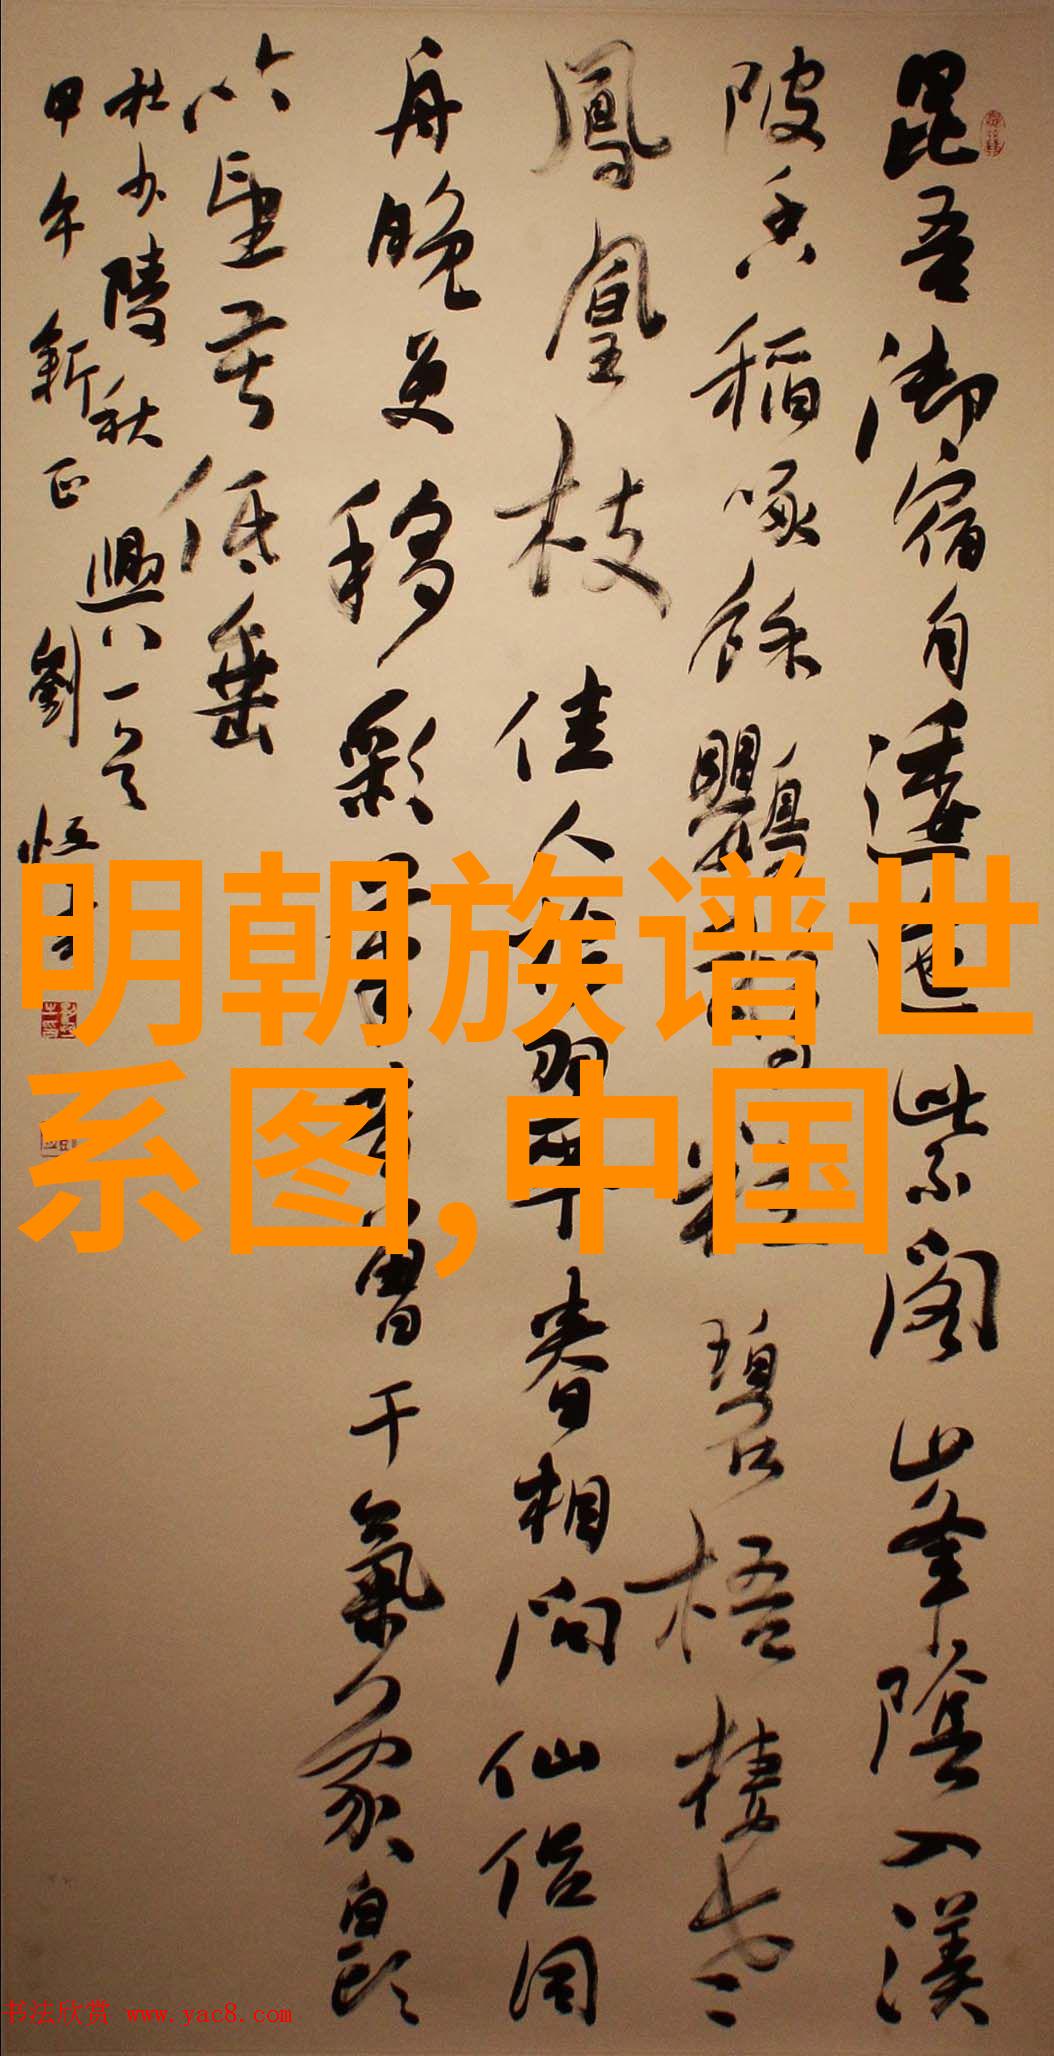 昆吾御宿自逶迤紫閣山峯陰入渼
陂香稻啄餘鸚鵡粒碧梧棲老
鳳凰枝佳人拾翠春相問仙侣同
舟晚更移彩筆昔曾干氣象白頭
吟望苦低垂
杜少陵秋興八一首
甲午新正劉恒
明朝族谱世
系图,中国
书法欣赏 www.yac8.com